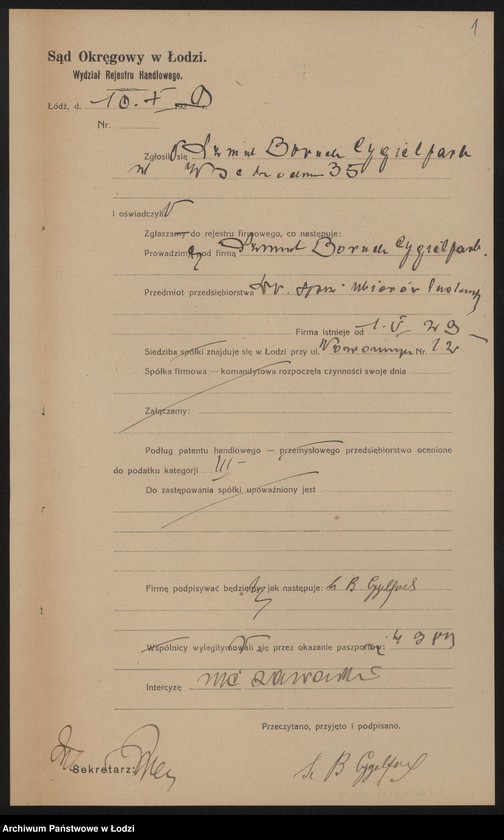 1
Sąd Okręgowy w Łodzi.
Wydział Rejestru Handlowego.
Łódź, d. 10. X 192 r.
Nr.
Zgłosił się Szmul Boruch Cygielfarb
35
i oświadczył
Zgłaszamy do rejestru firmowego, co następuje:
Prowadzimy pod firmą Szmul Boruch Cygielfarb.
Przedmiot przedsiębiorstwa ubiorów
Firma istnieje od 1. V 29
Siedziba spółki znajduje się w Łodzi przy ul. Nowomiejska Nr. 12
Spółka firmowa — komandytowa rozpoczęła czynności swoje dnia
Załączamy:
Podług patentu handlowego — przemysłowego przedsiębiorstwo ocenione
do podatku kategorji III
Do zastępowania spółki upoważniony jest
Firmę podpisywać będziemy jak następuje: Sz B Cygelfarb
Wspólnicy wylegitymowali się przez okazanie paszportów:
Intercyzę nie zawarł
Przeczytano, przyjęto i podpisano.
Sekretarz: Sz B Cygelfarb
Archiwum Państwowe w Łodzi